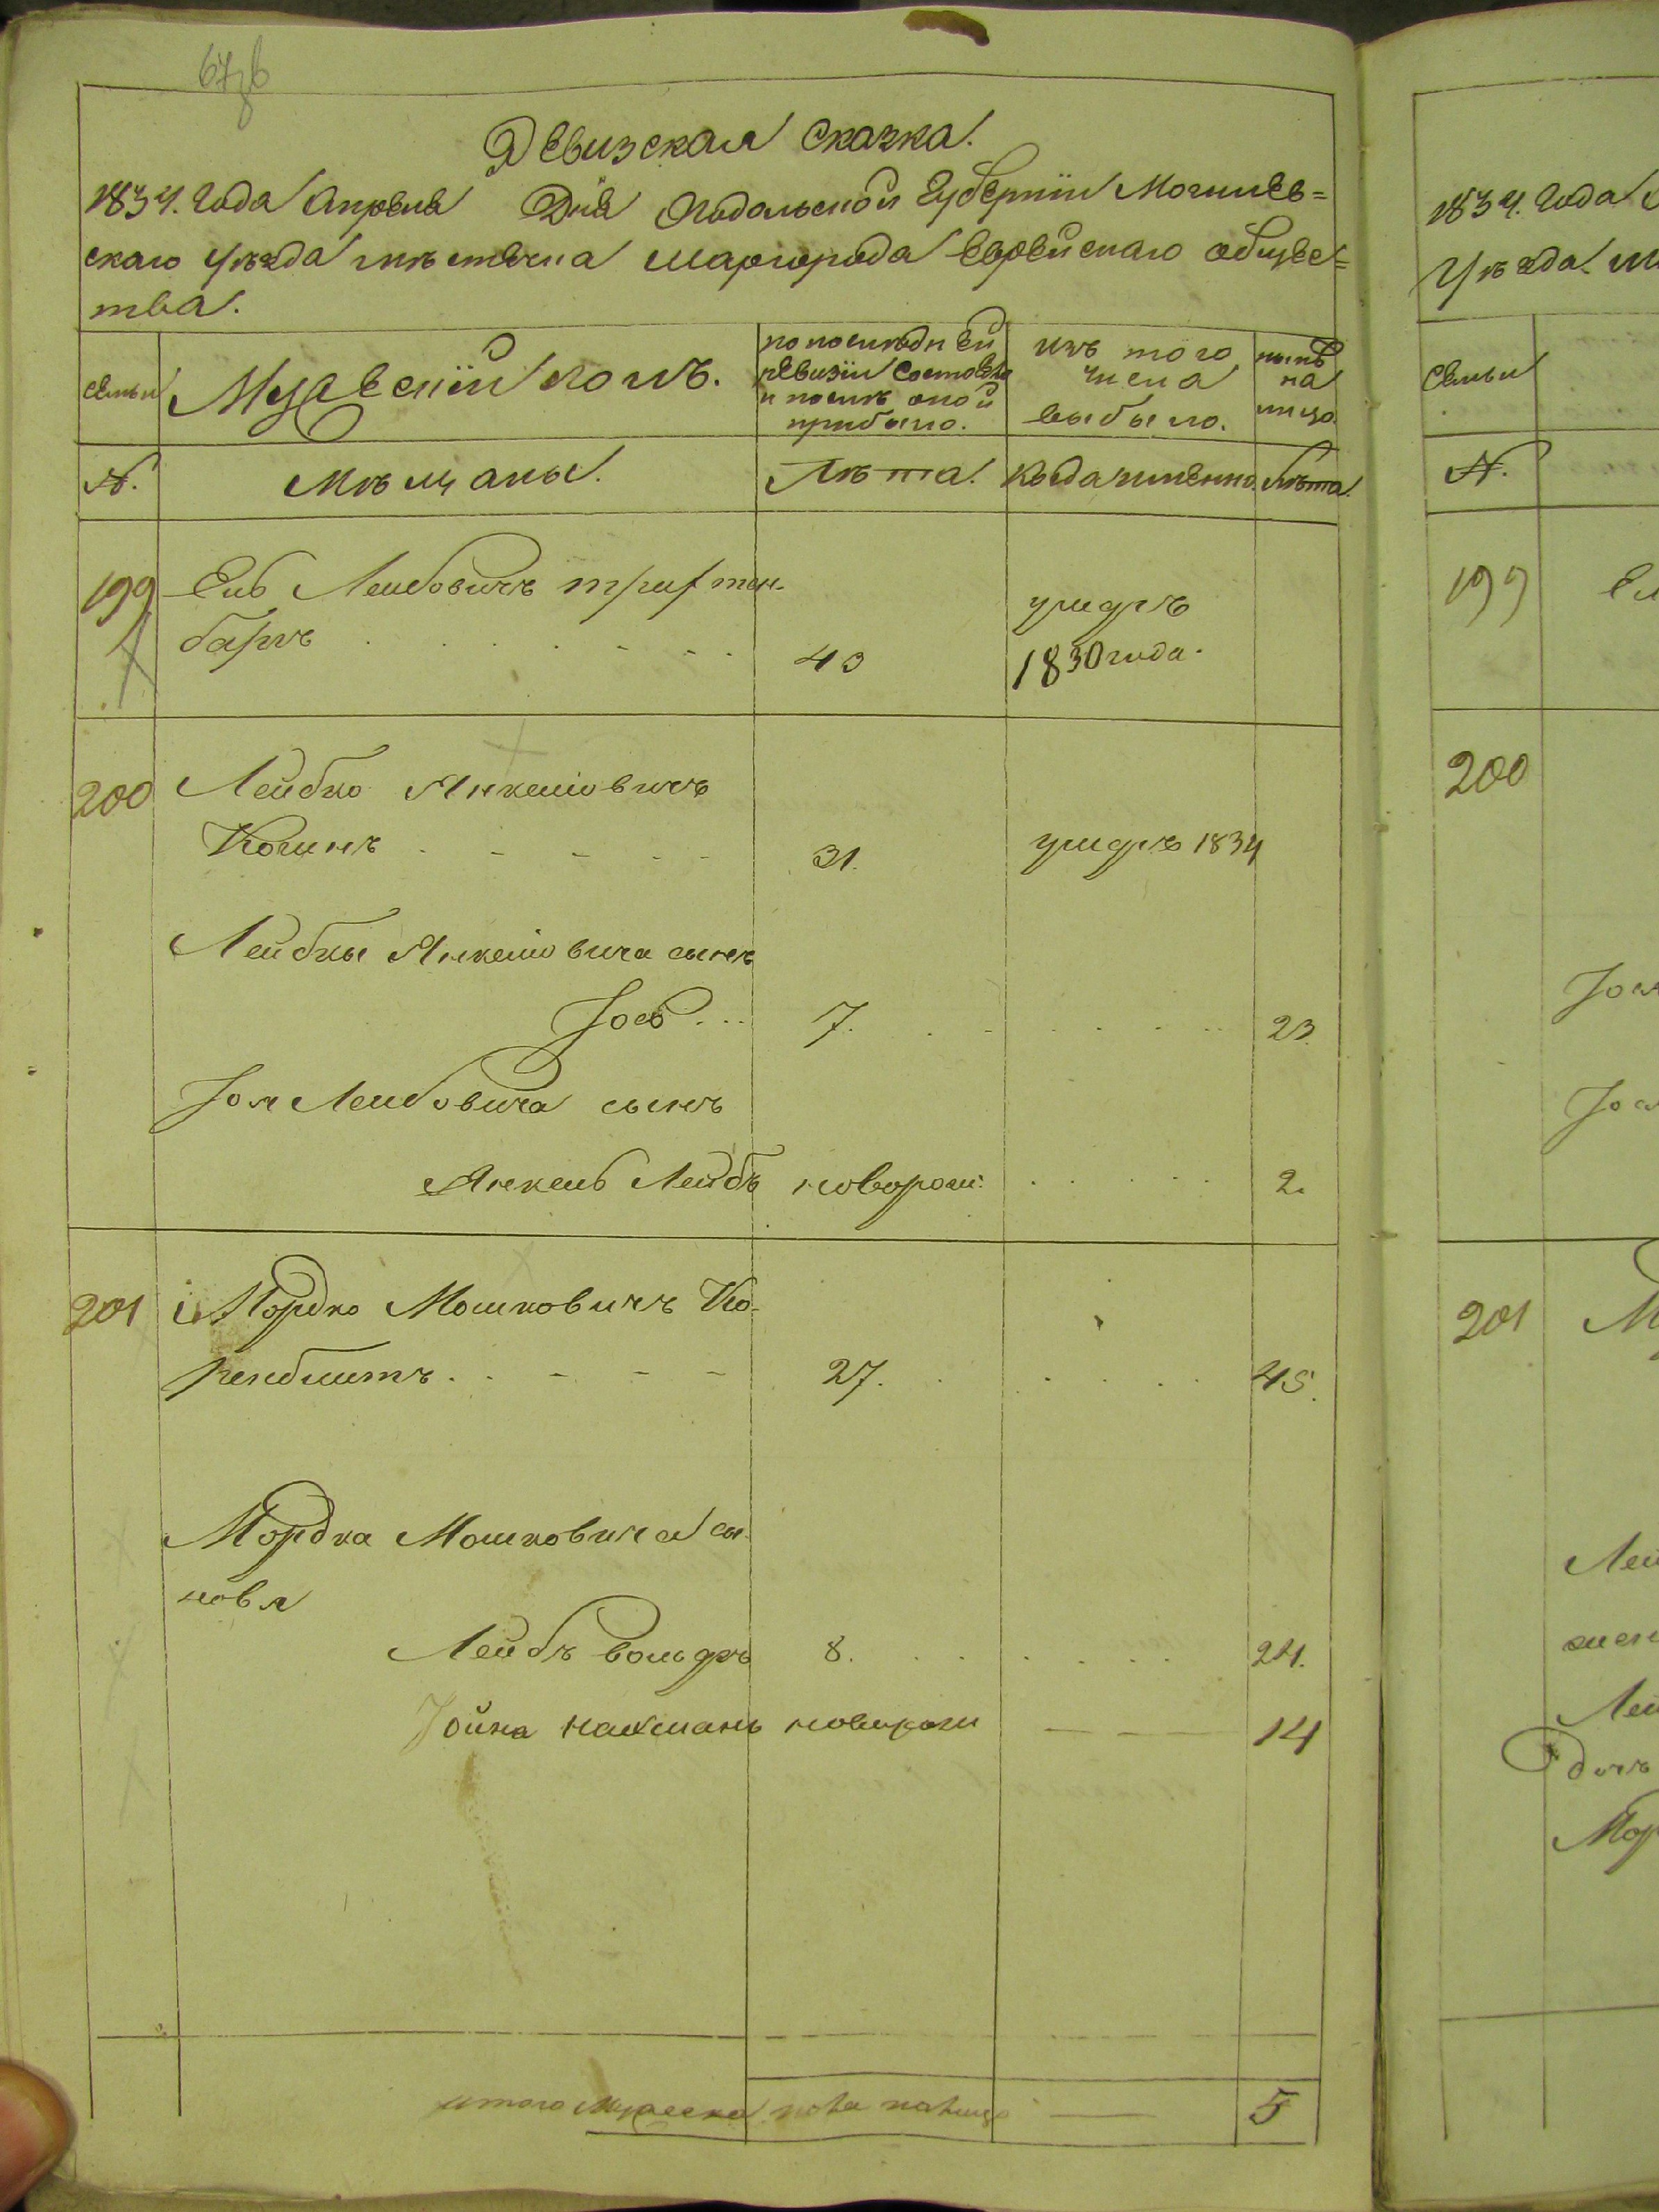 67об
Ревизская сказка.
1834. года Апреля Дня Подольской Губерніи Могилев=
скаго Уѣзда мѣстечка Шаргорода Еврейскаго общес=
тва.
семьи
Мужескій полъ.
по послѣдней
ревизіи состояло
и послѣ оной
прибыло.
изъ того
числа
выбыло.
нынѣ
на
лицо.
N.
Мѣщаны.
Лѣта.
Когда именно.
Лѣта.
199 Ель Лейбовичъ
барг 43 умеръ
1830 года.
200 Лейбко Янкеліовичъ
Коганъ 31. умеръ 1834
Лейбки Янкеліовича сынъ
Іось 7. 23.
Лейбовича сынъ
Янкель Лейбъ новорож: 2.
201 Мордко Мошковичъ Ко-
ренблитъ 27. 45.
Мордка Мошковича сы-
новя
Лейбъ Вольфъ 8. 24.
Іойна Нахманъ новорож 14
итого мужеска пола налицо 5
1834. года
Уѣзда.
семьи
N.
199
200
201